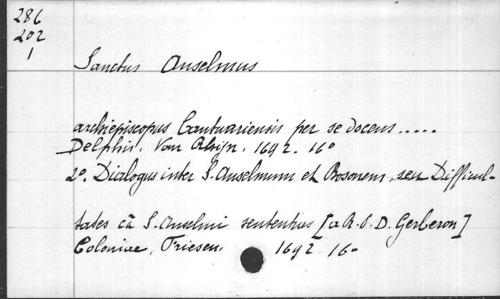 286
202
1
Sanctus Anselmus
archiepiscopus Cantuariensis per se docens.....
Delphis. Van Rhijn. 1692. 16°
2°. Dialogus inter S. Anselmum et Bosonem, seu Difficul-
tates cā S. Anselmi sententias [a R. P. D. Gerberon]
Coloniae, Friesen, 1692. 16°